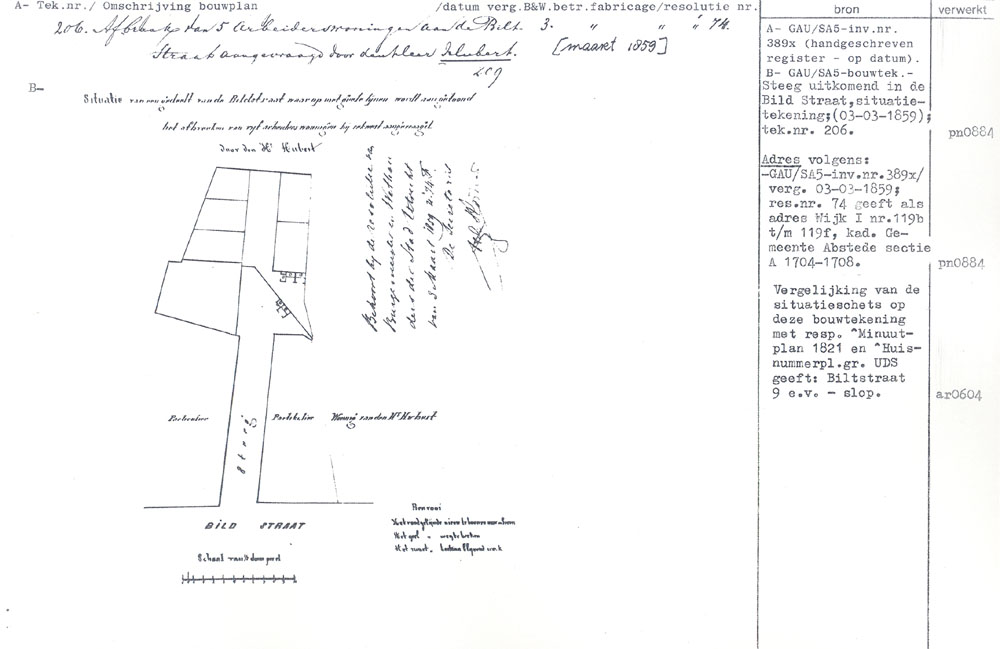 A- Tek.nr./ Omschrijving bouwplan /datum verg.B&W.betr.fabricage/resolutie nr.
206. Afbraak van 5 Arbeiderswoningen aan de Bilt. 3. " " " 74.
Straat aangevraagd door den Heer Hubert. [maart 1859]
B-
Situatie van een gedeelte van de Biltstraat waar op met gele lijnen wordt aangetoond
het afbreken van vijf
door den Hr Hubert
Behoort bij de resolutie van
Burgemeester en Wethou
ders der Stad Utrecht
van 3 Maart 1859 no 74 F.
De Secretaris
Particulier
Steeg
Particulier
Woning van den Hr Hubert
BILD STRAAT
Schaal van
Renvooi
Het geel " weg te breken
Het zwart.
bron
A- GAU/SA5-inv.nr.
389x (handgeschreven
register - op datum).
B- GAU/SA5-bouwtek.-
Steeg uitkomend in de
Bild Straat,situatie-
tekening;(03-03-1859);
tek.nr. 206.
Adres volgens:
-GAU/SA5-inv.nr.389x/
verg. 03-03-1859;
res.nr. 74 geeft als
adres Wijk I nr.119b
t/m 119f, kad. Ge-
meente Abstede sectie
A 1704-1708.
Vergelijking van de
situatieschets op
deze bouwtekening
met resp. ^Minuut-
plan 1821 en ^Huis-
nummerpl.gr. UDS
geeft: Biltstraat
9 e.v. - slop.
verwerkt
pn0884
pn0884
ar0604